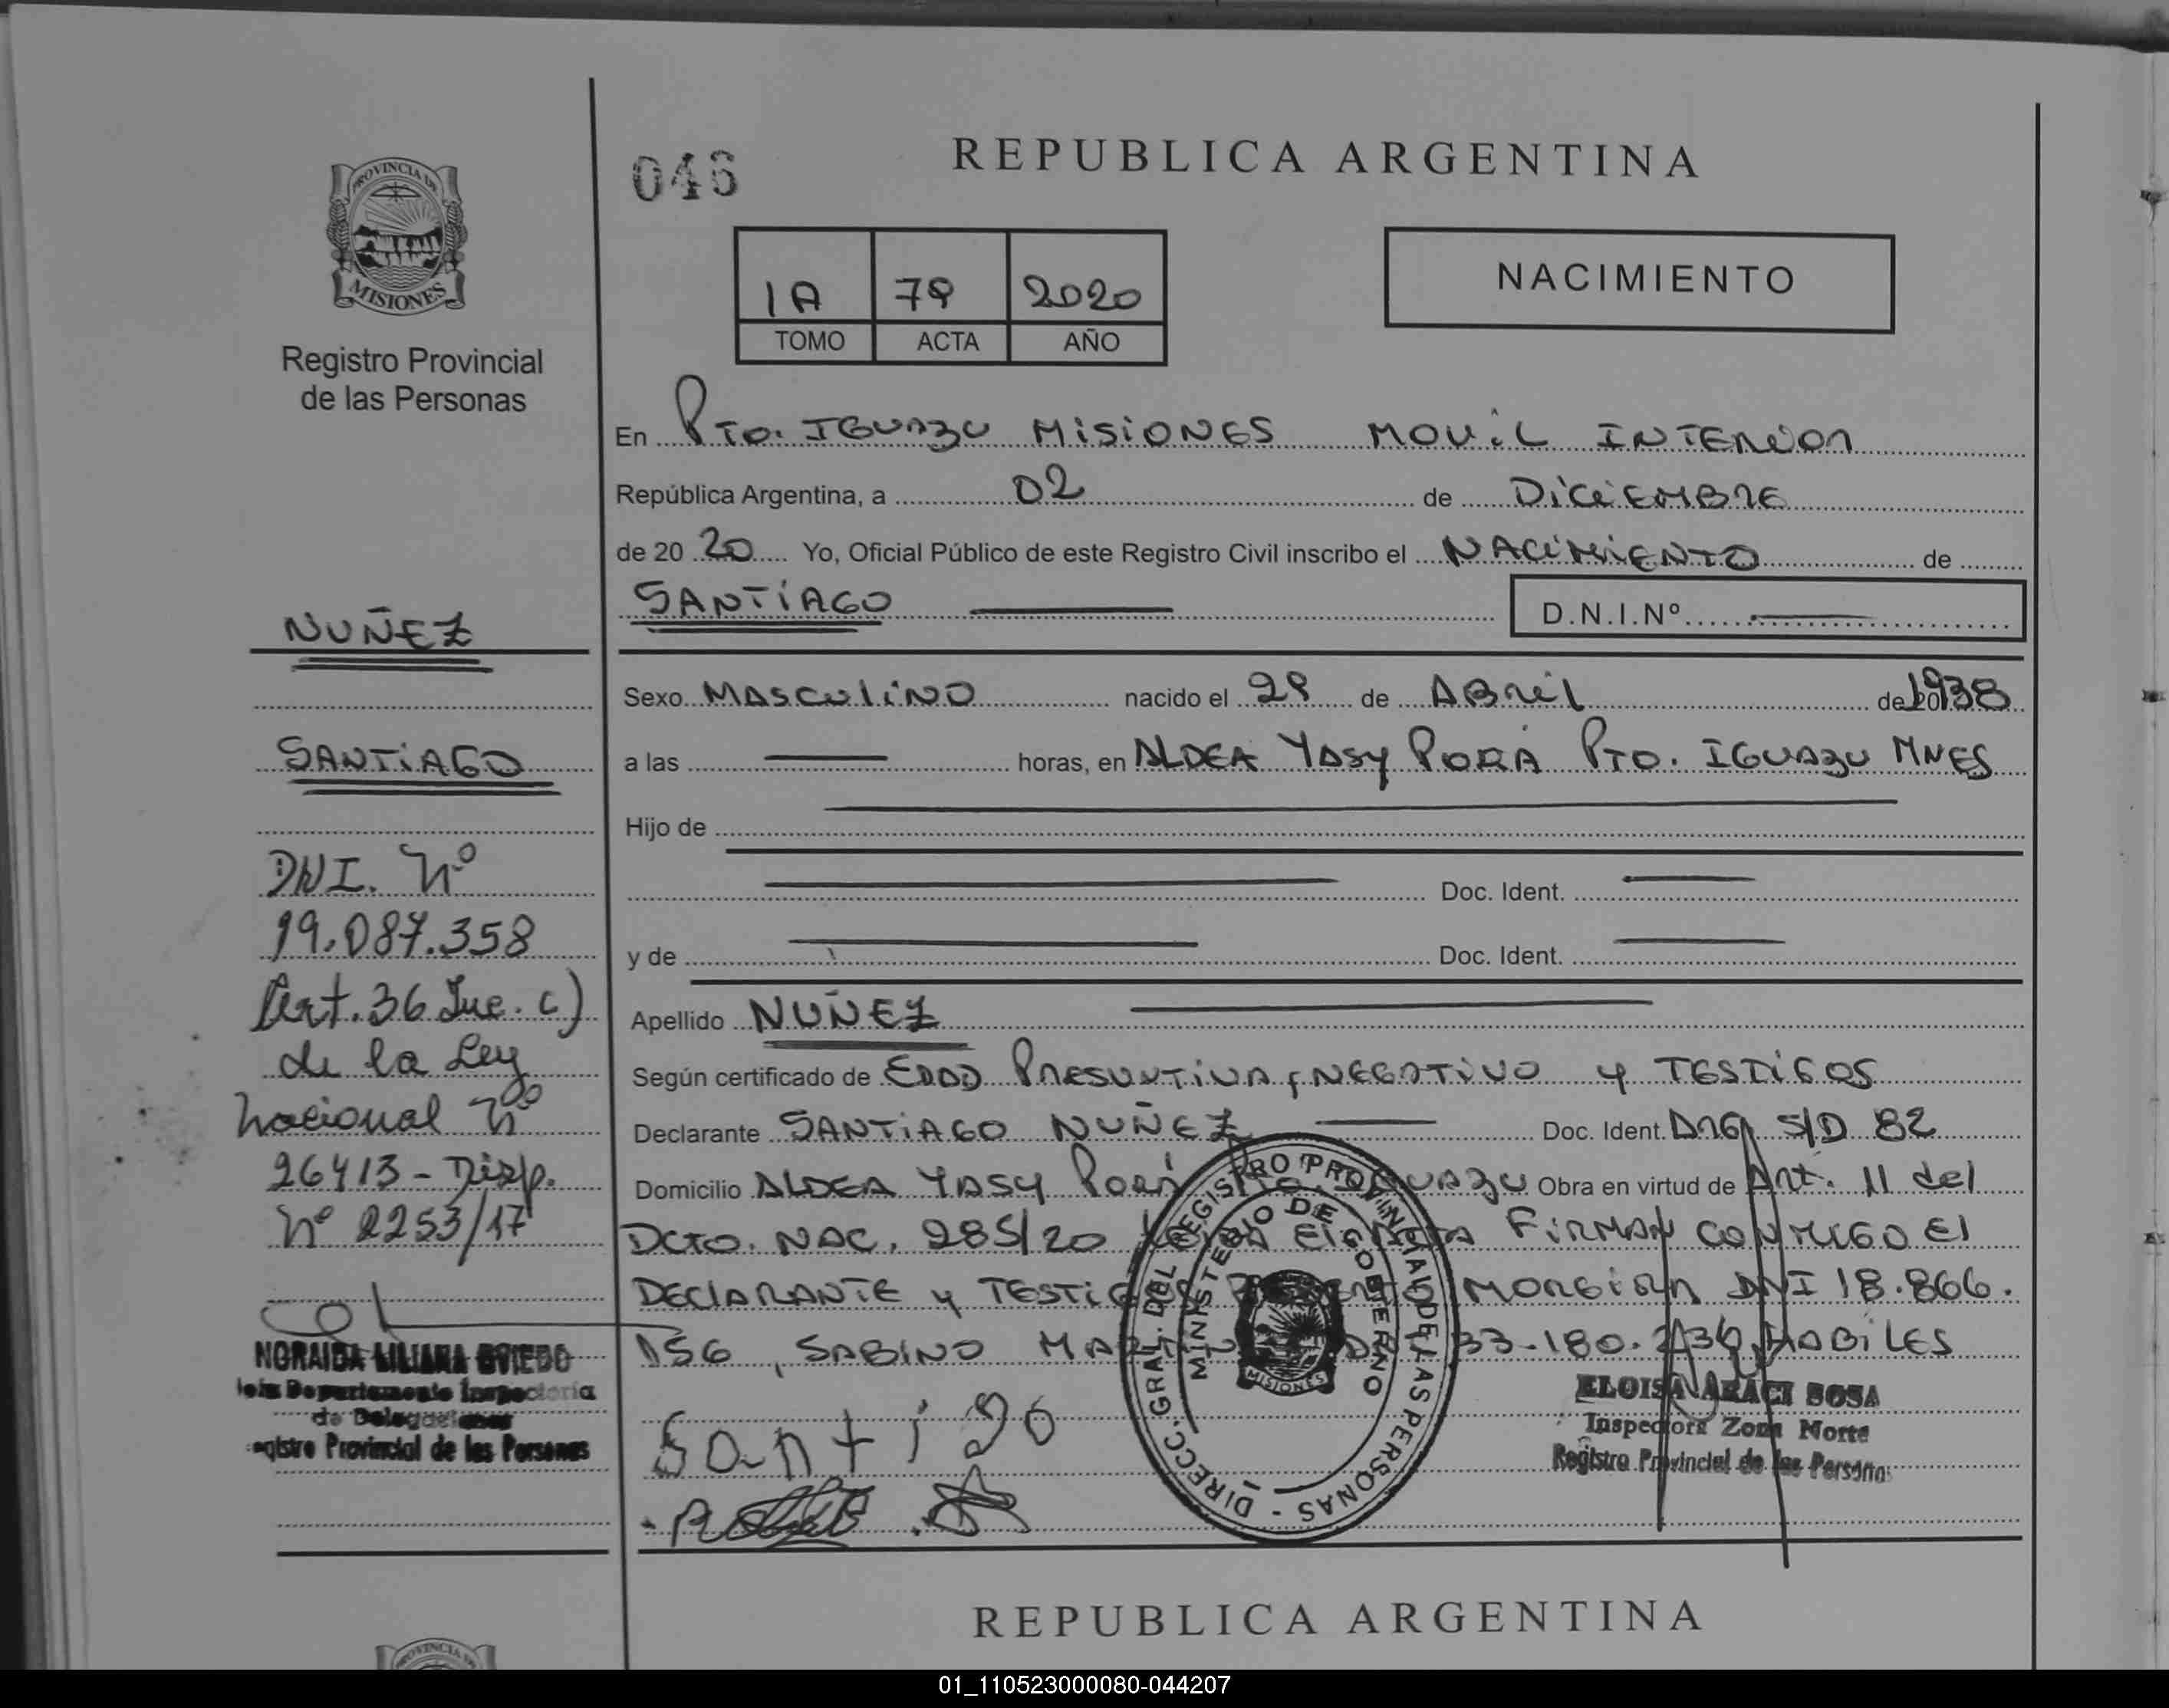 046
REPUBLICA ARGENTINA
PROVINCIA DE
MISIONES
Registro Provincial
de las Personas
1A 79 2020
TOMO ACTA AÑO
NACIMIENTO
En PTO. IGUAZU MISIONES MOVIL INTERIOR
República Argentina, a 02 de DICIEMBRE
de 20 20 Yo, Oficial Público de este Registro Civil inscribo el NACIMIENTO de
SANTIAGO D.N.I.Nº
Sexo MASCULINO nacido el 29 de ABRIL de 1938
a las horas, en ALDEA YASY PORÁ PTO. IGUAZU MNES
Hijo de
Doc. Ident.
y de Doc. Ident.
Apellido NUÑEZ
Según certificado de EDAD PRESUNTIVA, NEGATIVO y TESTIGOS
Declarante SANTIAGO NUÑEZ Doc. Ident. S/D 82
Domicilio ALDEA YASY PORÁ IGUAZU Obra en virtud de Art. 11 del
DCTO. NAC. 285/20 El FIRMAN CONMIGO El
DECLARANTE y TESTIGOS MORGIAN DNI 18.866.
156, SABINO 33-180. HABILES
Santiago
ELOISA ARACI SOSA
Inspectora Zona Norte
Registro Provincial de las Personas
DIRECC. GRAL. DEL REGISTRO PROVINCIAL DE LAS PERSONAS
MINISTERIO DE GOBIERNO
MISIONES
NUÑEZ
SANTIAGO
DNI. Nº
19.087.358
Art. 36 Inc. c)
de la Ley
Nacional Nº
26413 - Disp.
Nº 2253/17
NORAIDA LILIANA OVIEDO
Jefa Departamento Inspectoria
de Delegaciones
Registro Provincial de las Personas
REPUBLICA ARGENTINA
01_110523000080-044207